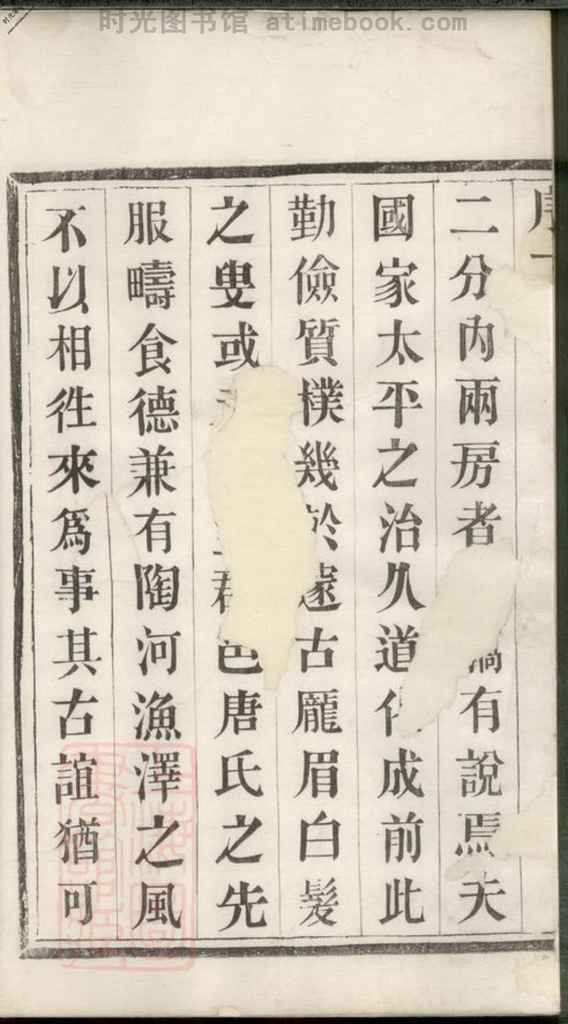 时光图书馆 atimebook.com
二分內兩房者有說焉夫
國家太平之治久道成前此
勤儉質樸幾於遠古龐眉白髮
之叟或邑唐氏之先
服疇食德兼有陶河漁澤之風
不以相徃來爲事其古誼猶可